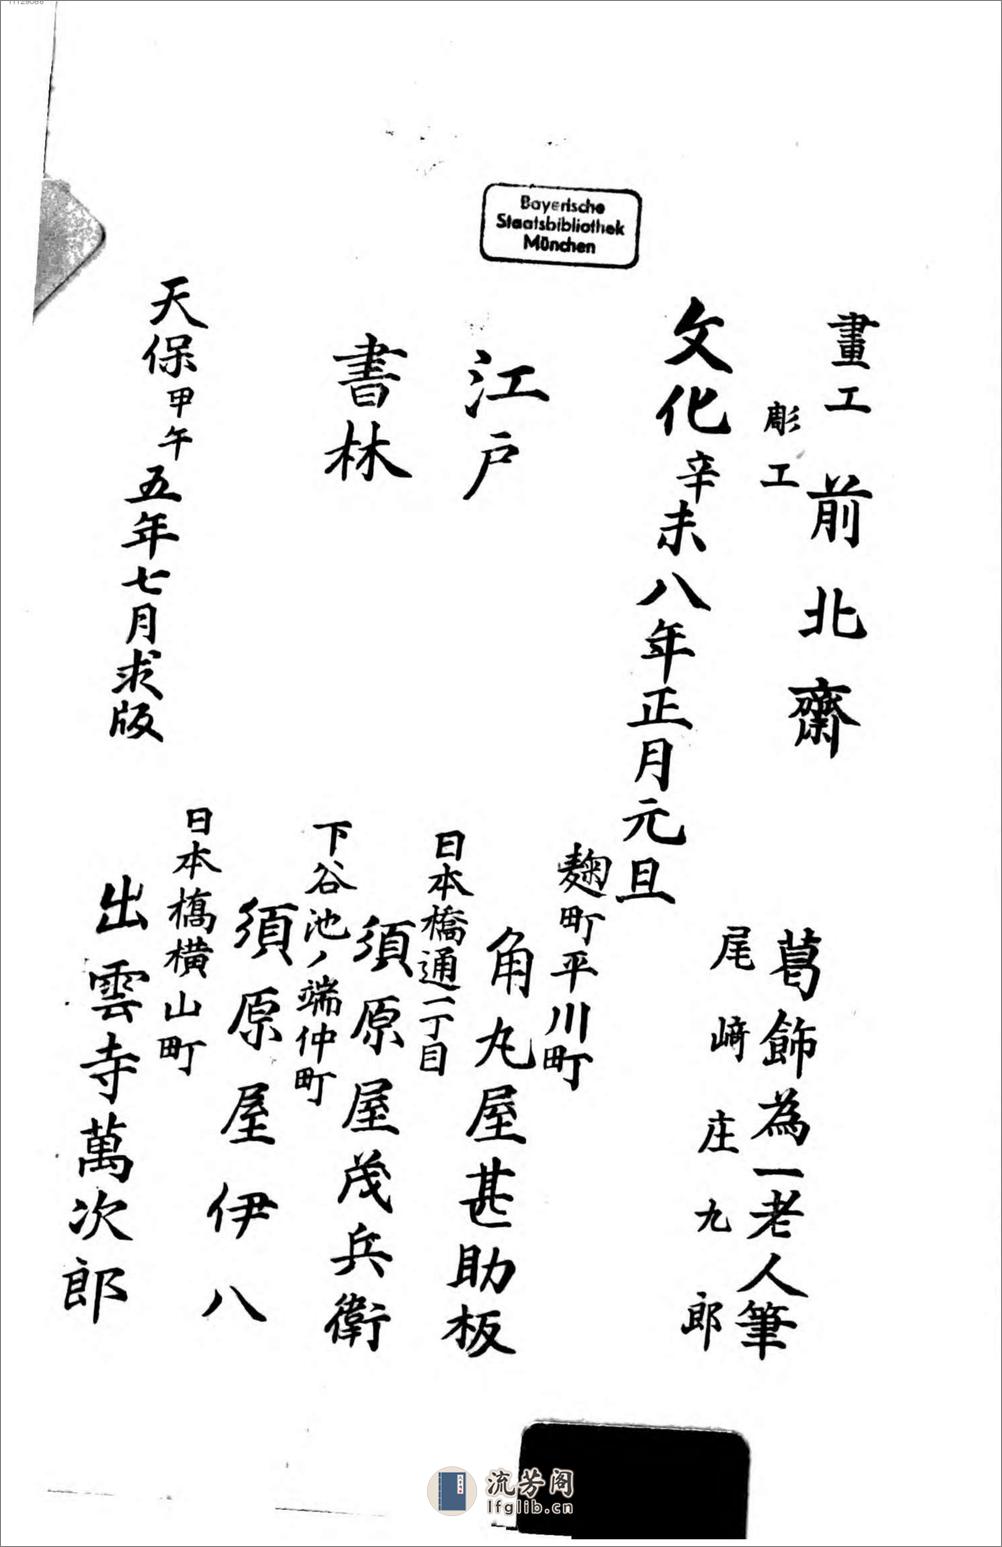 11129086
Bayerische
Staatsbibliothek
München
畫工 前北齋 葛飾為一老人筆
彫工 尾﨑庄九郎
文化辛未八年正月元旦
江戸
麹町平川町
角丸屋甚助板
日本橋通二丁目
須原屋茂兵衛
書林
下谷池ノ端仲町
須原屋伊八
日本橋横山町
出雲寺萬次郎
天保甲午五年七月求版
流芳阁
lfglib.cn